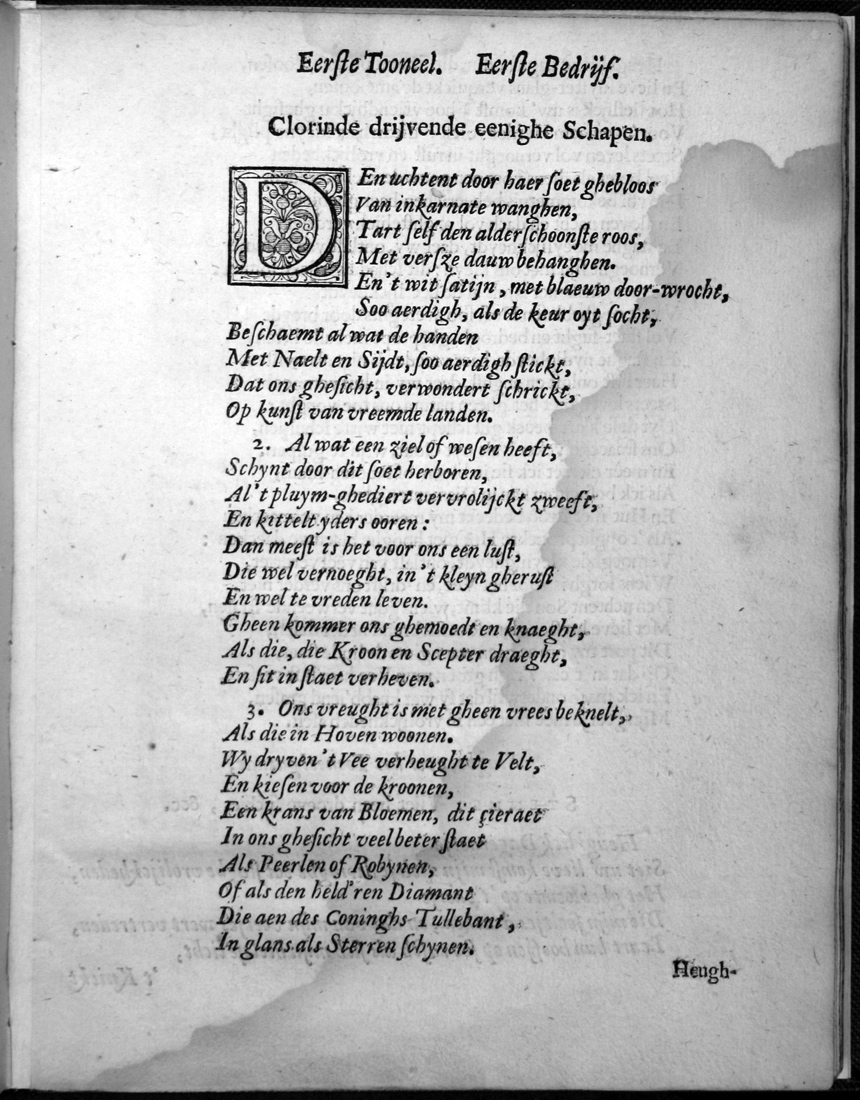 Eerſte Tooneel. Eerſte Bedrijf.
Clorinde drijvende eenighe Schapen.
DEn uchtent door haer ſoet ghebloos
Van inkarnate wanghen,
Tart ſelf den alderſchoonſte roos,
Met verſze dauw behanghen.
En't wit ſatijn, met blaeuw door-wrocht,
Soo aerdigh, als de keur oyt ſocht,
Beſchaemt al wat de handen
Met Naelt en Sijdt, ſoo aerdigh ſtickt,
Dat ons gheſicht, verwondert ſchrickt,
Op kunſt van vreemde landen.
2. Al wat een ziel of weſen heeft,
Schynt door dit ſoet herboren,
Al't pluym-ghediert vervrolijckt zweeft,
En kittelt yders ooren:
Dan meeſt is het voor ons een luſt,
Die wel vernoeght, in't kleyn gheruſt
En wel te vreden leven.
Gheen kommer ons ghemoedt en knaeght,
Als die, die Kroon en Scepter draeght,
En ſit in ſtaet verheven.
3. Ons vreught is met gheen vrees beknelt,
Als die in Hoven woonen.
Wy dryven't Vee verheught te Velt,
En kieſen voor de kroonen,
Een krans van Bloemen, dit çieraet
In ons gheſicht veel beter ſtaet
Als Peerlen of Robynen,
Of als den held'ren Diamant
Die aen des Coninghs Tullebant,
In glans als Sterren ſchynen.
Heugh-